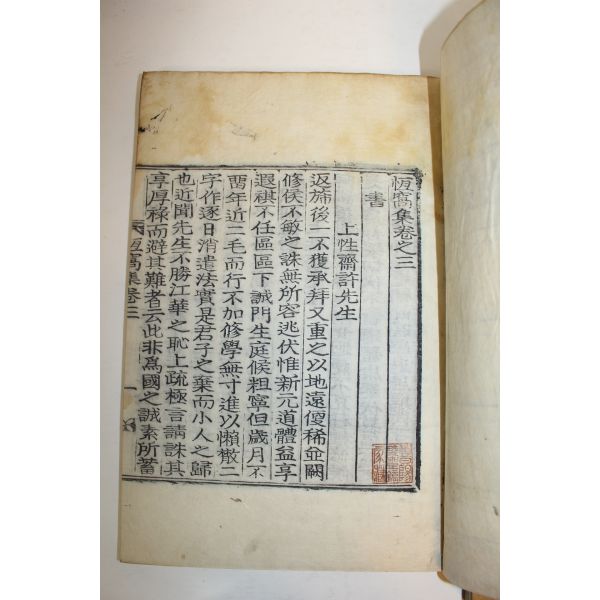 恆窩集卷之三
書
上性齋許先生
返斾後一不獲承拜又重之以地遠便稀並闕
修候不敏之誅無所容逃伏惟新元道體益享
遐祺不任區區下誠門生庭候粗寧但歲月不
留年近二毛而行不加修學無寸進以懶散二
字作逐日消遣法實是君子之棄而小人之歸
也近聞先生不勝江華之恥上疏極言請誅其
享厚祿而避其難者云此非爲國之誠素所蓄
恆窩集卷三
一